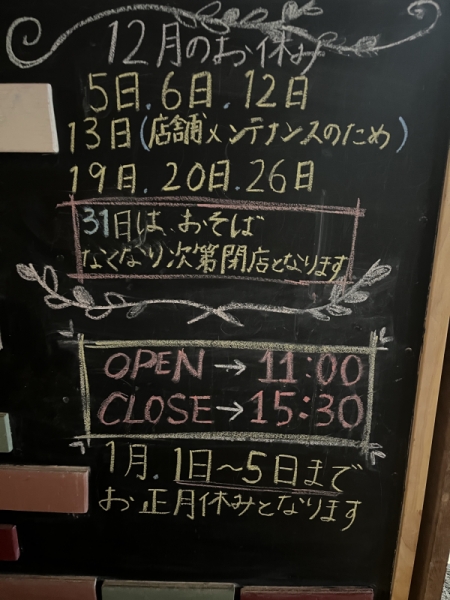 12月のお休み
5日.6日.12日
13日(店舗メンテナンスのため)
19日.20日.26日
31日は、おそば
なくなり次第閉店となります
OPEN→11:00
CLOSE→15:30
1月.1日〜5日まで
お正月休みとなります